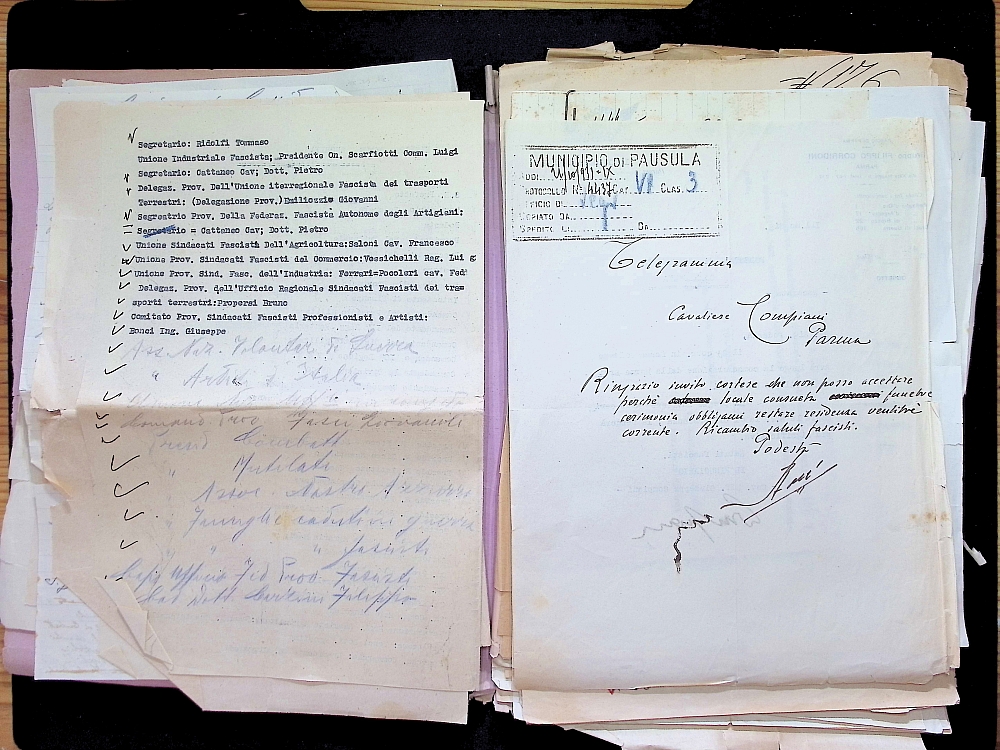 Segretario: Ridolfi Tommaso
Unione Industriale Fascista; Prsidente On. Scarfiotti Comm. Luigi
Segretario: Cattaneo Cav; Dott. Pietro
Delegaz. Prov. Dell'Unione iterregionale Fascista dei trasporti
Terrestri: (Delegazione Prov.) Emiliozzi Giovanni
Segreatrio Prov. Della Federaz. Fascista Autonome degli Artigiani:
Segretario = Cattaneo Cav; Dott. Pietro
Unione Sindacati Fascisti Dell'Agricoltura: Saloni Cav. Francesco
Unione Prov. Sindacati Fascisti del Commercio: Vessichelli Rag. Lui g
Unione Prov. Sind. Fasc. dell'Industria: Ferrari=Pocoleri cav. Fed
Delegaz. Prov. dell'Ufficio Regionale Sindacati Fascisti dei tra=
sporti terrestri: Propersi Bruno
Comitato Prov. Sindacati Fascisti Professionisti e Artisti:
Bonci Ing. Giuseppe
Ass. Naz. Volontari di Guerra
" Arditi d'Italia
Comand. Prov. Fasci Giovanili
Presid Combatt
" Mutilati
" Assoc. Nastro Azzurro
" Famiglie caduti in guerra
" " fascisti
Capo Ufficio Fed Prov. Fascisti
Dott. Filippo
N 176
MUNICIPIO DI PAUSULA
ADDI
PROTOCOLLO N. 4437 CAT. VI CLAS. 3
UFFICIO DI
COPIATO DA
SPEDITO DA
Telegramma
Cavaliere Compiani
Parma
Ringrazio invito cortese che non posso accettare
perchè locale consueta funebre
cerimonia obbligami restare residenza ventitrè
corrente. Ricambio saluti fascisti.
Podestà